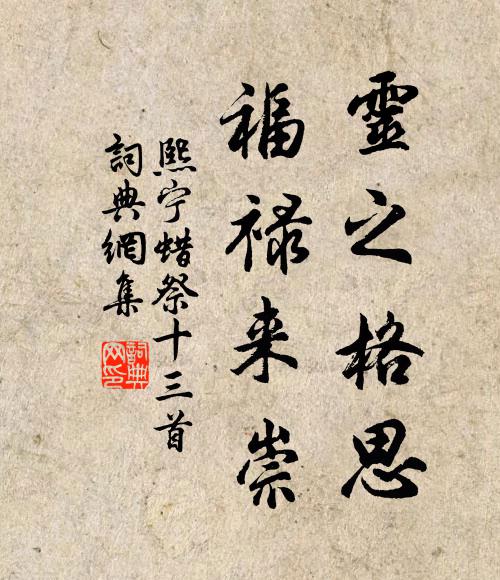 靈之格思
福禄来崇
熙宁蜡祭十三首
詞典網集
詞典
网印